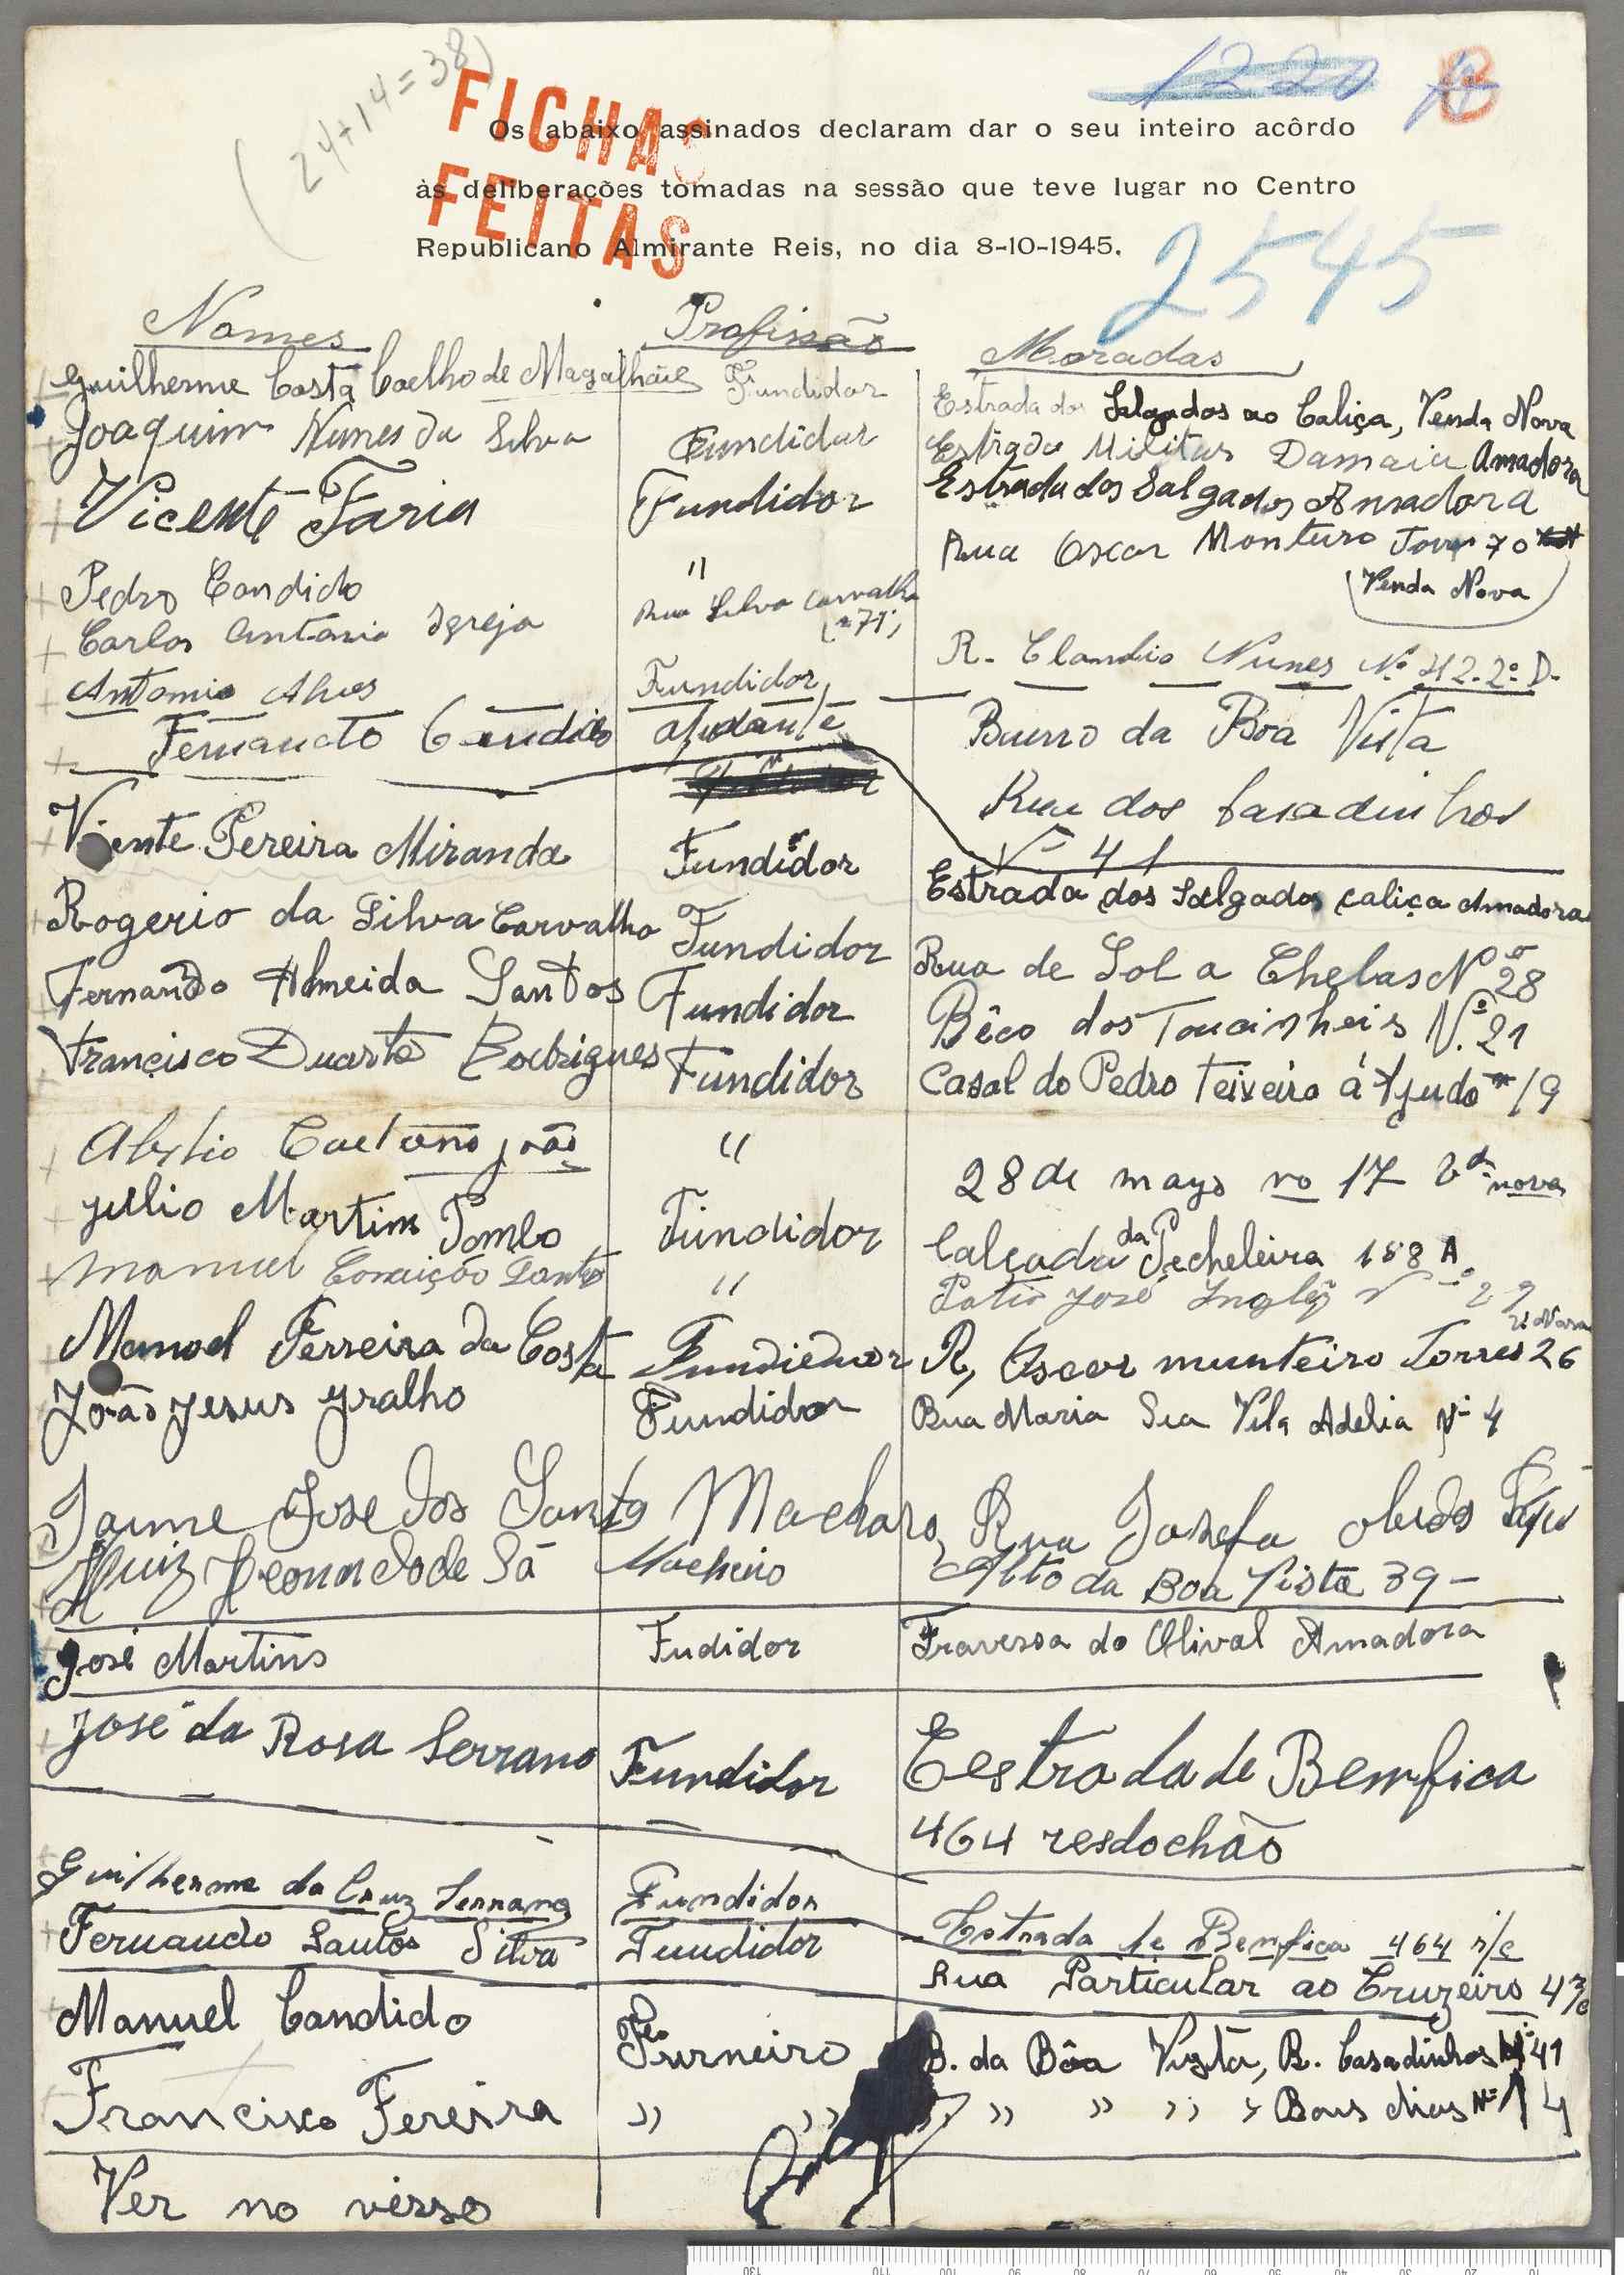 (24+14=38)
1220
FICHAS
FEITAS
Os abaixo assinados declaram dar o seu inteiro acôrdo
às deliberações tomadas na sessão que teve lugar no Centro
Republicano Almirante Reis, no dia 8-10-1945.
2545
Nomes Profissão Moradas
Guilherme Costa Coelho de Magalhães Fundidor Estrada dos Salgados ao Caliça, Venda Nova
Joaquim Nunes da Silva Fundidor Estrada Militar Damaia Amadora
Vicente Faria Fundidor Estrada dos Salgados Amadora
Pedro Candido " Rua Oscar Monturo Torres 70
(Venda Nova)
Carlos Antonio Igreja Rua Silva Carvalho
(nº 71)
Antonio Alves Fundidor R. Claudio Nunes Nº 42.2º D.
Fernando Candido ajudante Bairro da Boa Vista
Rua dos Casadinhos
Nº 41
Vicente Pereira Miranda Fundidor Estrada dos Salgados caliça Amadora
Rogerio da Silva Carvalho Fundidor Rua de Sol a Chelas Nº 28
Fernando Almeida Santos Fundidor Bêco dos Toucinheis Nº. 21
Francisco Duarte Rodrigues Fundidor Casal do Pedro Teixeira á Ajudo nº 19
Abilio Caetano João " 28 de mayo no 17 Vda nova
Julio Martins Pombo Fundidor Calçada da Picheleira 188 A
Manuel Conceição Santos " Patio José Inglês Nº 29
Manoel Ferreira da Costa Fundiedor R, Oscar munteiro Torres 26
João Jesus gralho Fundidor Rua Maria Sua Vila Adelia Nº 4
Jaime José dos Santos Macharo Rua Josefa obidos
Luiz Leonardo de Sá Macheiro Alto da Boa Vista 39-
José Martins Fudidor Travessa do Olival Amadora
José da Rosa Serrano Fundidor Eestrada de Bemfica
464 resdochão
Guilherme da Cruz Serrano Fundidor Estrada de Bemfica 464 r/c
Fernando Santos Silva Fundidor Rua Particular ao Cruzeiro 4 r/c
Manuel Candido Furneiro B. da Bôa Vista, R. Casadinhos Nº 41
Francisco Fereira " " " " " " Bons dias Nº 14
Ver no verso